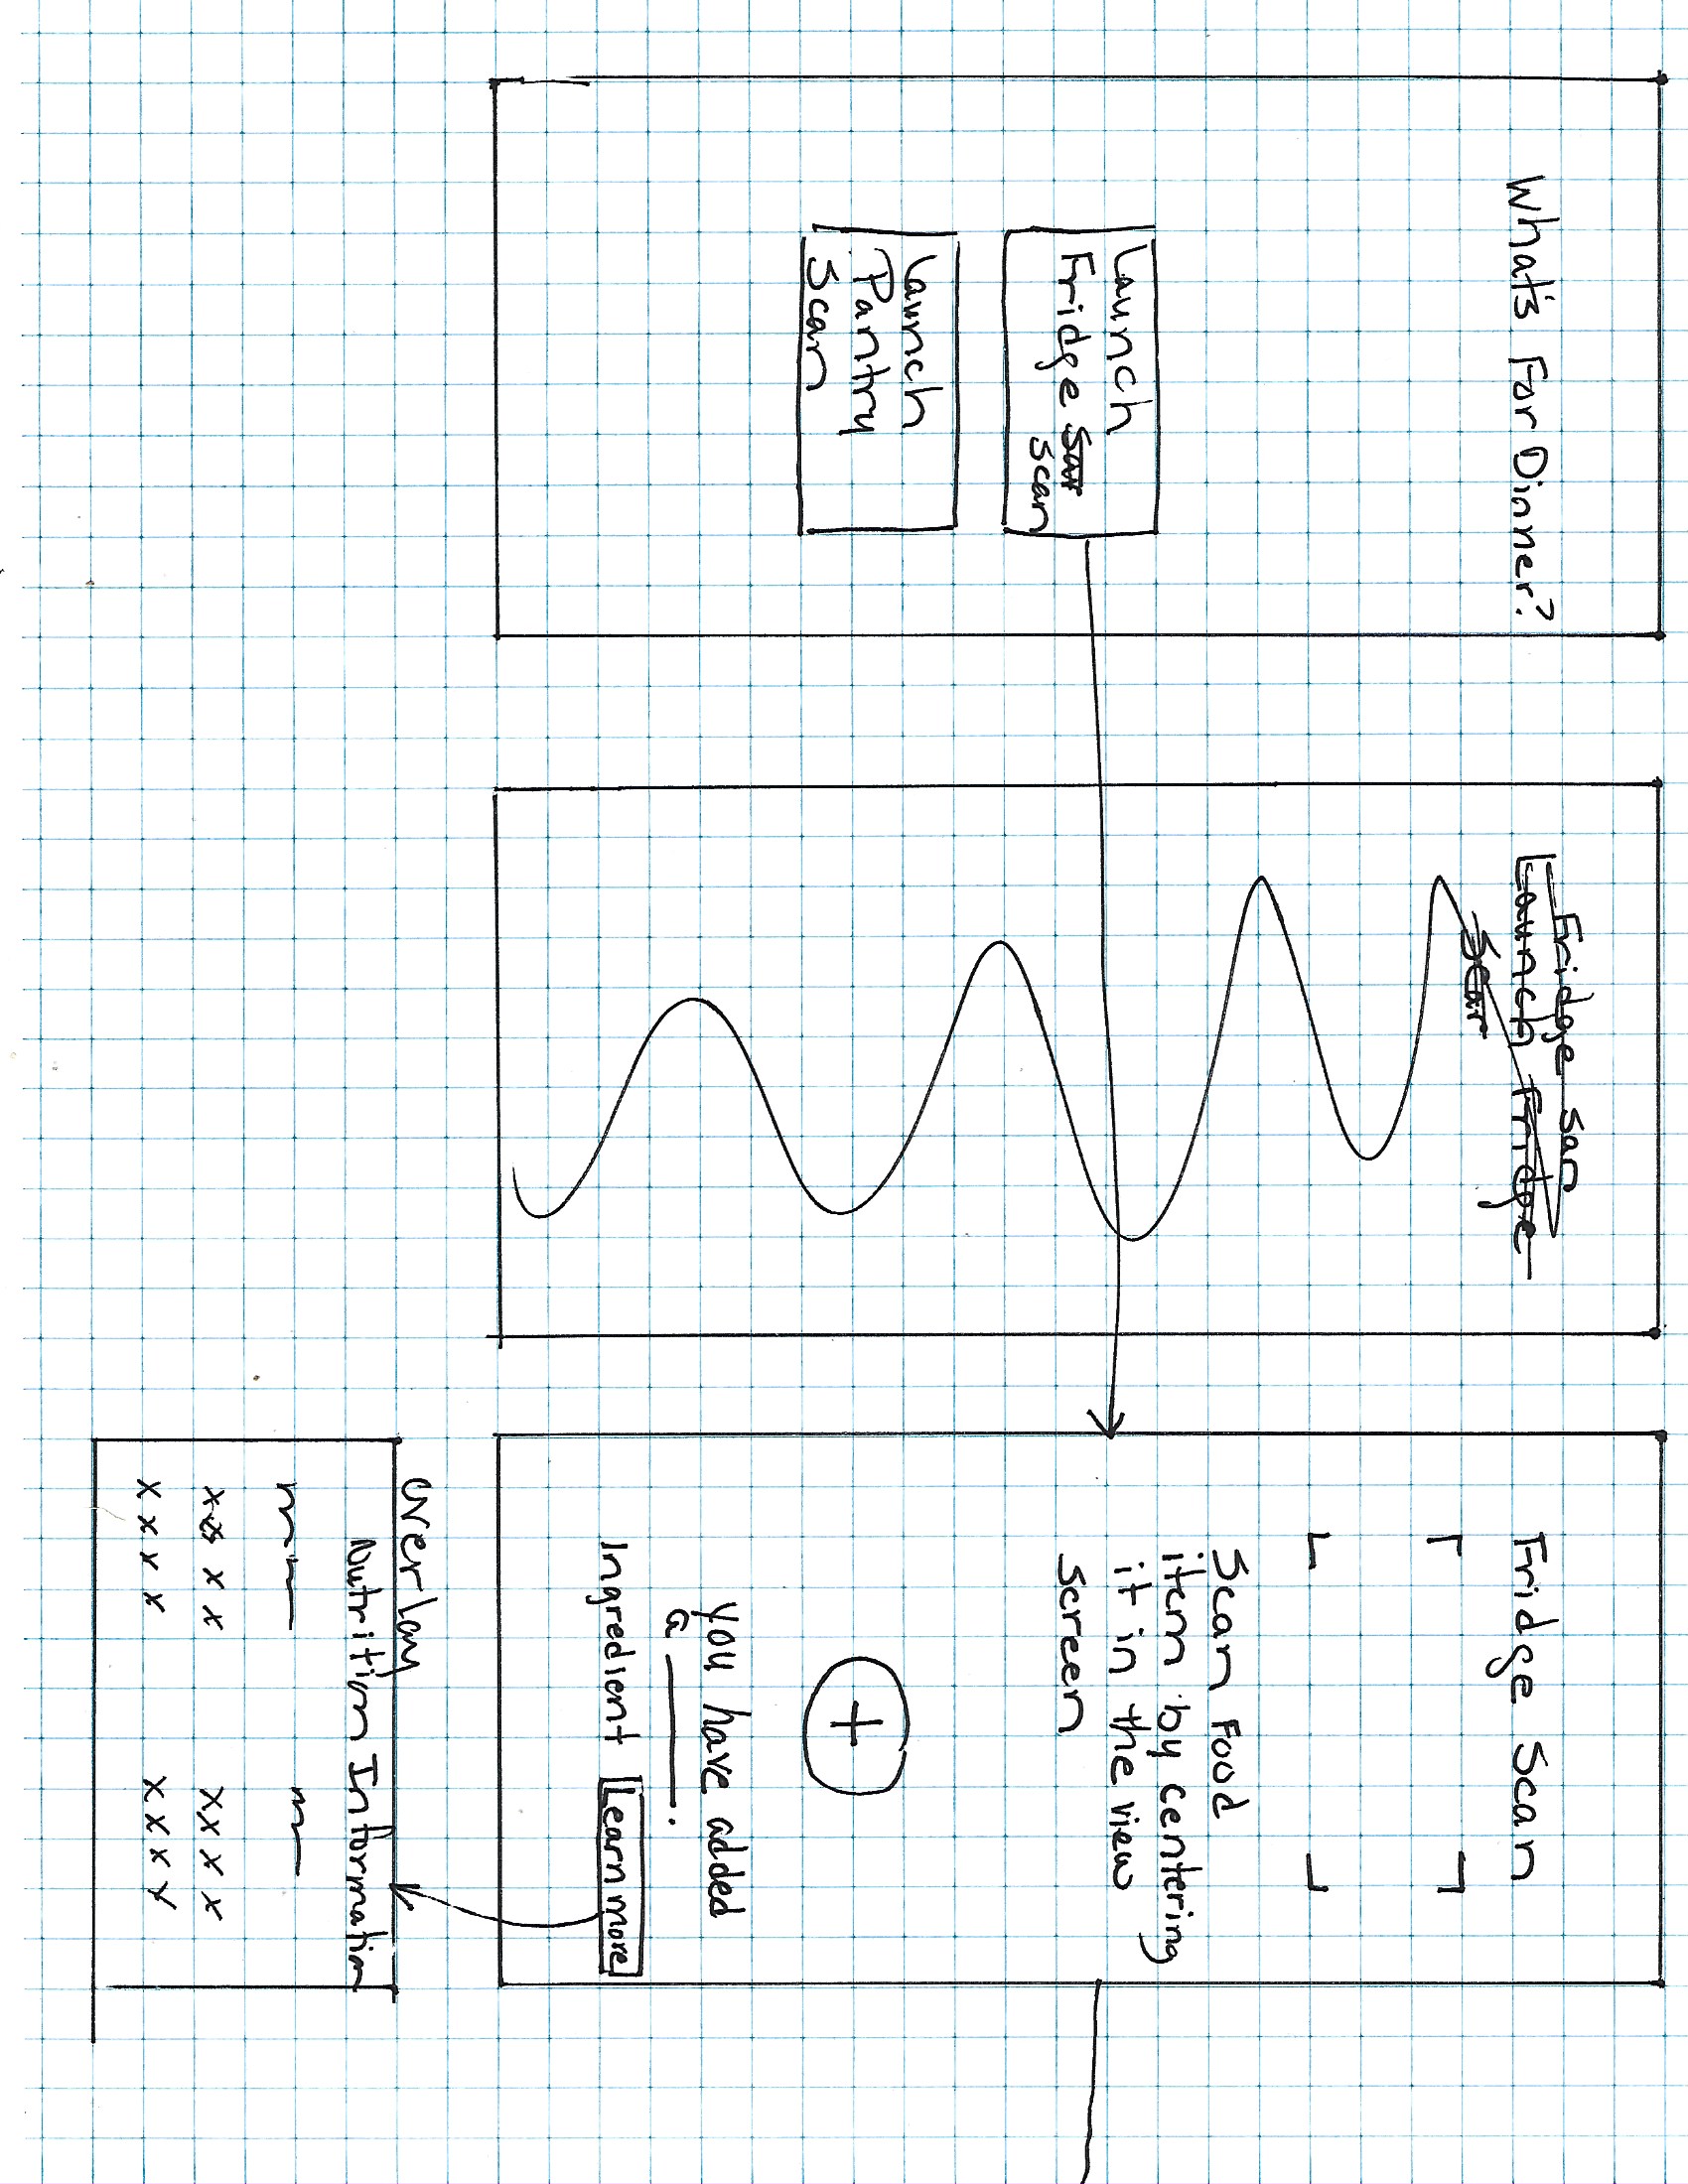 What's For Dinner?
Launch
Fridge
Scan
Launch
Pantry
Scan
Fridge San
Launch Fridge
Fridge Scan
Scan Food
item by centering
it in the view
screen
+
You have added
a ______.
Ingredient Learn more
overlay
Nutrition Information
x x x x
x x x x
x x x x
x x x x